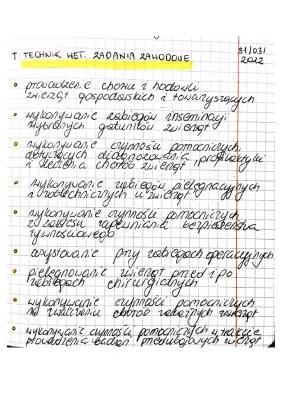 T TECHNIK WET. ZADANIA ZAWODOWE
31/03/
2022
• prowadzenie chowu i hodowli
zwierząt gospodarskich i towarzyszących
• wykonywanie zabiegów inseminacji
wybranych gatunków zwierząt
• wykonywanie czynności pomocniczych
dotyczących diagnozowania, profilaktyki
i leczenia chorób zwierząt
• wykonywanie zabiegów pielęgnacyjnych
i zootechnicznych u zwierząt
• wykonywanie czynności pomocniczych
z zakresu zapewniania bezpieczeństwa
żywnościowego
• asystowanie przy zabiegach operacyjnych
• pielęgnowanie zwierząt przed i po
zabiegach chirurgicznych
• wykonywanie czynności pomocniczych
na zwalczaniu chorób zakaźnych zwierząt
• wykonywanie czynności pomocniczych w trakcie
prowadzenia badań przedubojowych zwierząt